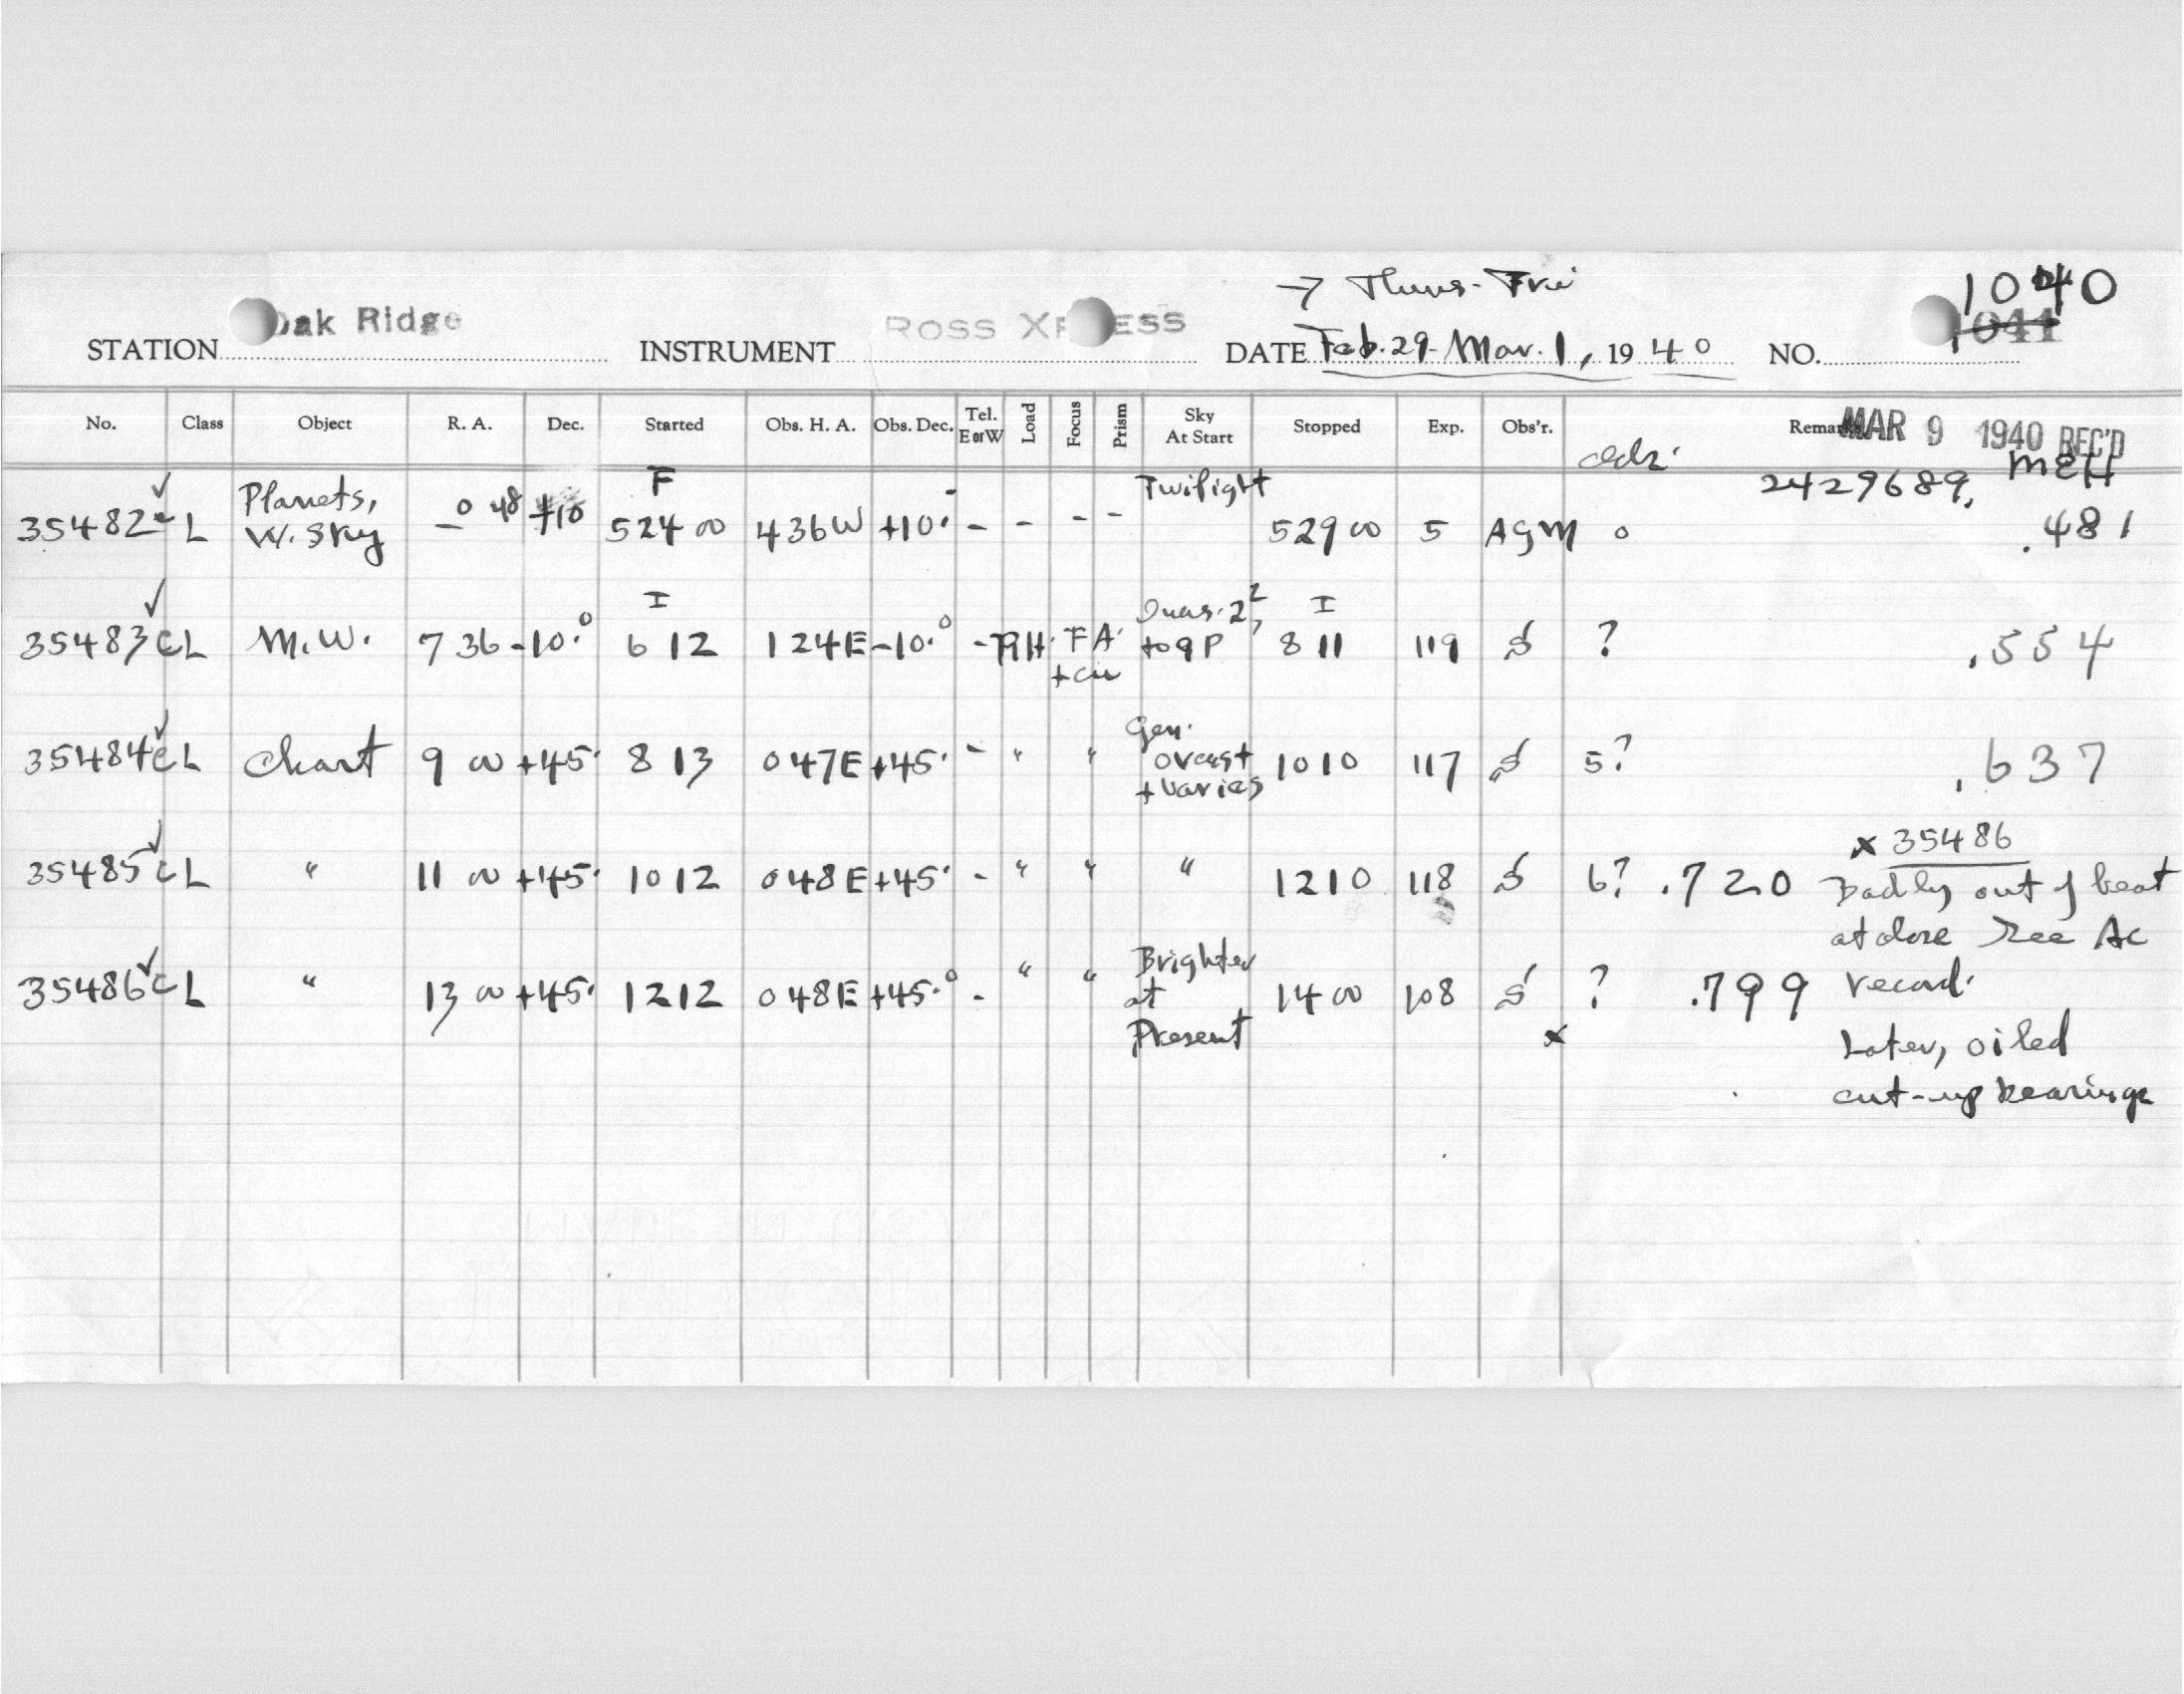 → Thurs-Fri
1040
STATION Oak Ridge INSTRUMENT ROSS XPRESS DATE Feb. 29-Mar. 1, 1940 NO. 1041
No. Class Object R. A. Dec. Started Obs. H. A. Obs. Dec. Tel. E or W Load Focus Prism Sky At Start Stopped Exp. Obs'r. Remarks
MAR 9 1940 REC'D
MEH
2429689.
35482 CL Planets, W. Sky 0 48 +10 F 524 00 436W +10° - - - - Twilight 529 00 5 AGM 0 .481
35483 CL M.W. 7 36 -10.° I 6 12 124E -10.° - PH. FA. + cu to 9P I 8 11 119 S ? .554
35484 CL Chart 9 00 +45° 8 13 047E +45° - " " Gen. overcast + varies 1010 117 S 5? .637
35485 CL " 11 00 +45° 1012 048E +45° - " " " 1210 118 S 6? .720
35486 CL " 13 00 +45° 1212 048E +45.° - " " Brighter at Present 1400 108 S ? .799
x
x 35486
Badly out of beat
at close See AC
record.
Later, oiled
cut-up bearings